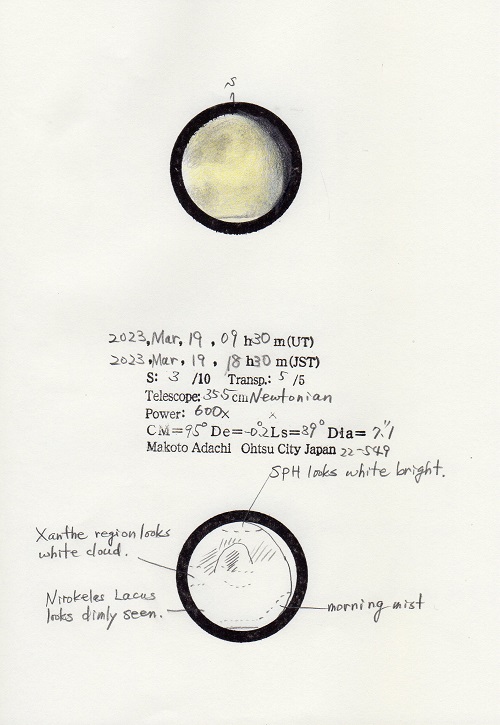 S
2023, Mar, 19, 09 h30 m(UT)
2023, Mar, 19, 18 h30 m(JST)
S: 3 /10 Transp.: 5 /5
Telescope: 355cm Newtonian
Power: 600x x
CM=95° De=-0.°2 Ls=39° Dia= 7."1
Makoto Adachi Ohtsu City Japan 22-549
SPH looks white bright.
Xanthe region looks
white cloud.
Nirokeles Lacus
looks dimly seen.
morning mist